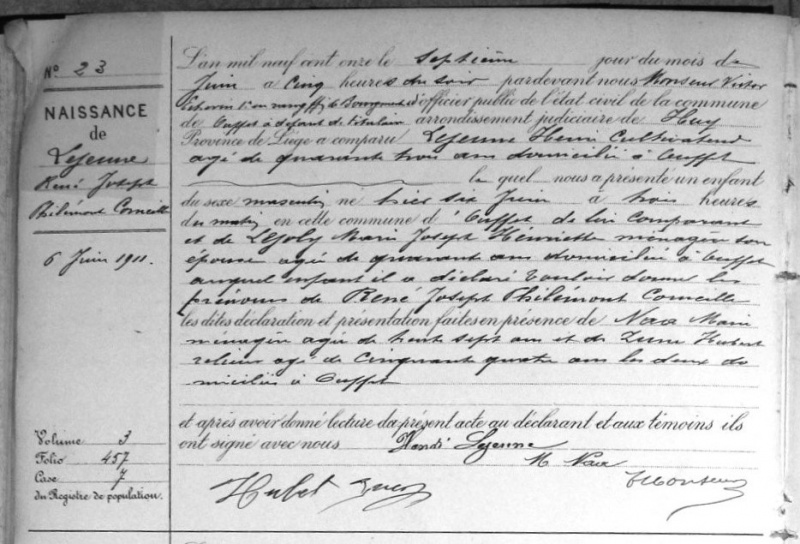 N° 23
NAISSANCE
de
Lejeune
René Joseph
Philémont Corneille
6 Juin 1911.
Volume 3
Folio 457
Case 7
du Registre de population.
L'an mil neuf cent onze le septième jour du mois de
Juin à cinq heures du soir pardevant nous Monseur Victor
Echevin d'officier public de l'état civil de la commune
de Ouffet à défaut de titulaire arrondissement judiciaire de Huy
Province de Liège a comparu Lejeune Henri Cultivateur
agé de quarante trois ans domicilié à Ouffet
le quel nous a présenté un enfant
du sexe masculin né hier six Juin à trois heures
du matin en cette commune d'Ouffet de lui Comparant
et de Lejoly Marie Joseph Henriette ménagère son
épouse agée de quarante ans domiciliée à Ouffet
auquel enfant il a déclaré vouloir donner les
prénoms de René Joseph Philémont Corneille
les dites déclaration et présentation faites en présence de Nava Marie
ménagère agée de sept ans et de Hubert
agé de Cinquante quatre ans les deux do
miciliés à Ouffet
et après avoir donné lecture du présent acte au déclarant et aux témoins ils
ont signé avec nous Henri Lejeune
M Nava
Hubet
VMonseur